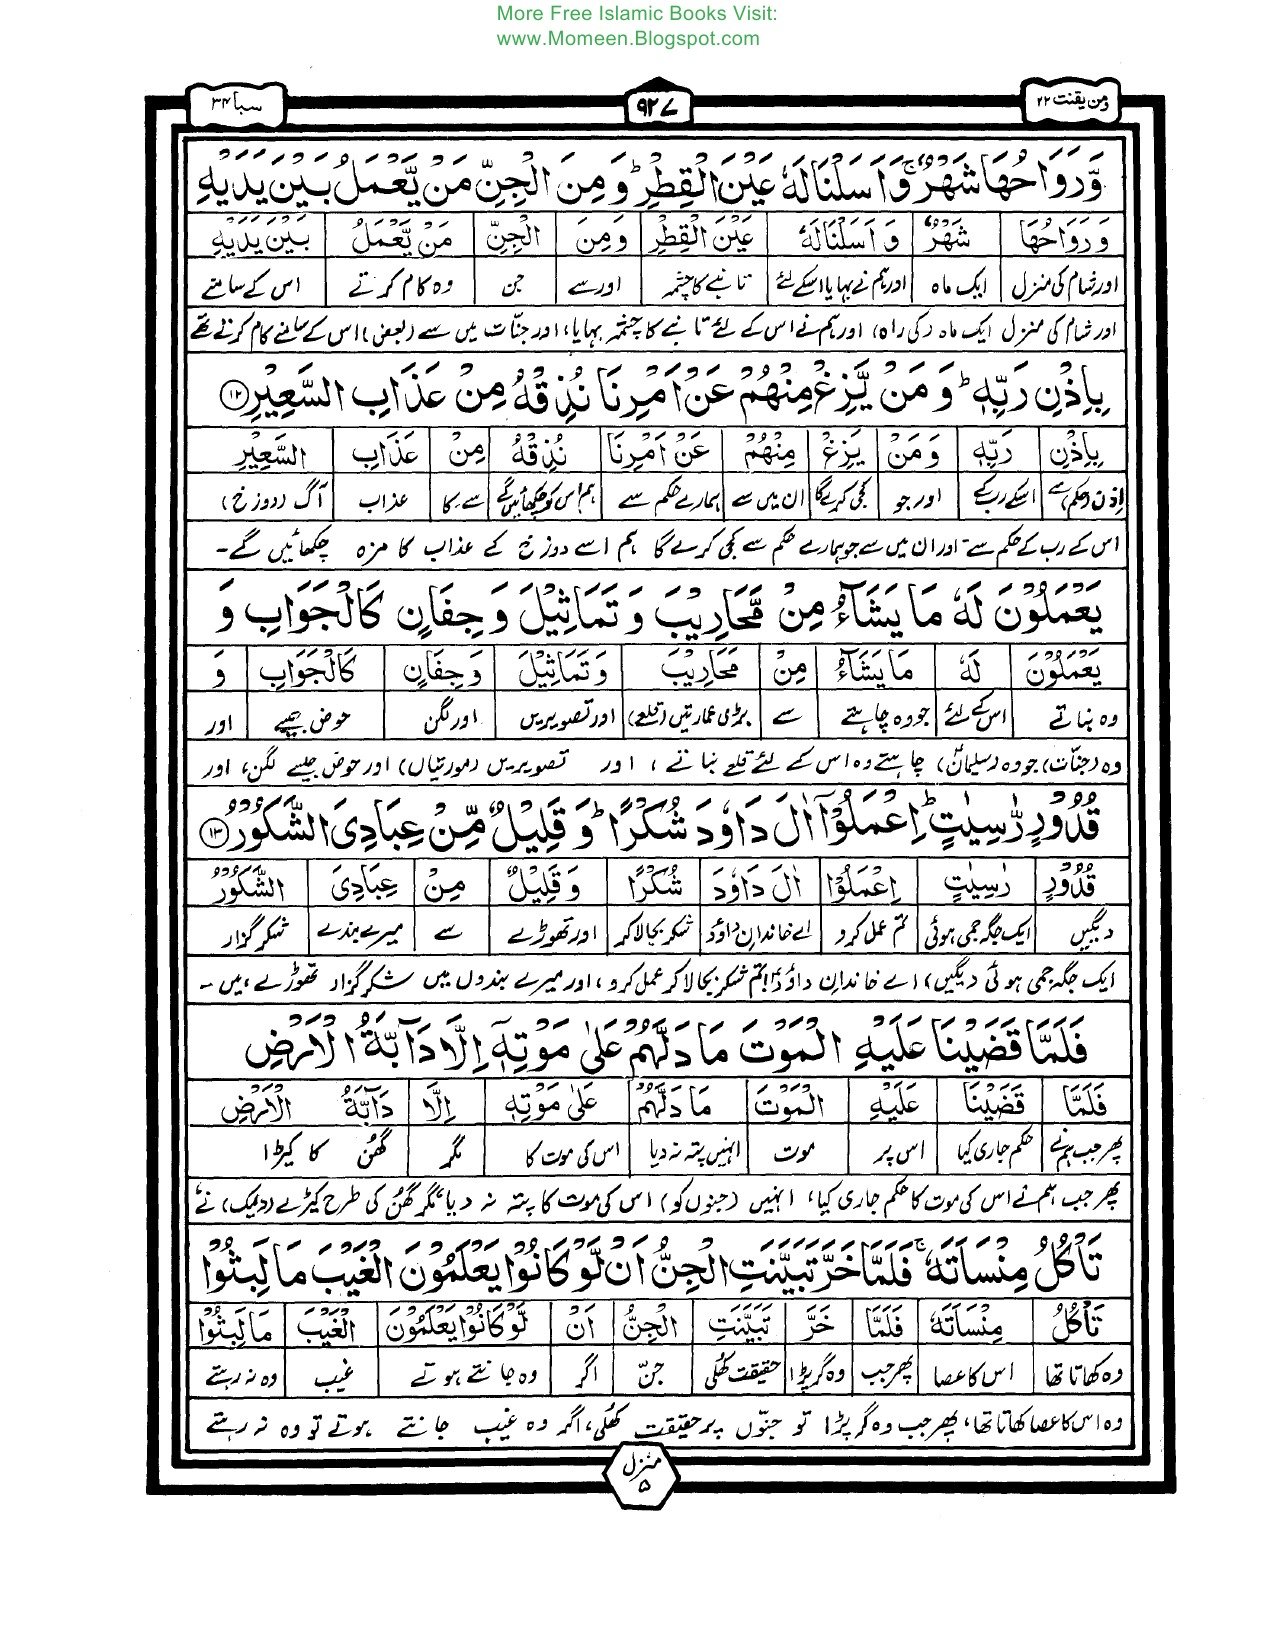 More Free Islamic Books Visit:
www.Momeen.Blogspot.com
ومن یقنت ۲۲
۹۲۷
سبا ۳۴
وَّرَوَاحُهَا شَهْرٌ ۚ وَاَسَلْنَا لَهٗ عَيْنَ الْقِطْرِ ؕ وَمِنَ الْجِنِّ مَنْ يَّعْمَلُ بَيْنَ يَدَيْهِ
وَرَوَاحُهَا شَهْرٌ وَاَسَلْنَا لَهٗ عَيْنَ الْقِطْرِ وَمِنَ الْجِنِّ مَنْ يَّعْمَلُ بَيْنَ يَدَيْهِ
اور شام کی منزل ایک ماہ اور ہم نے بہایا اسکے لئے تانبے کا چشمہ اور سے جن وہ کام کرتے اس کے سامنے
اور شام کی منزل ایک ماہ (کی راہ) اور ہم نے اس کے لئے تانبے کا چشمہ بہایا، اور جنات میں سے (بعض) اس کے سامنے کام کرتے تھے
بِاِذْنِ رَبِّهٖ ؕ وَمَنْ يَّزِغْ مِنْهُمْ عَنْ اَمْرِنَا نُذِقْهُ مِنْ عَذَابِ السَّعِيْرِ ۱۲
بِاِذْنِ رَبِّهٖ وَمَنْ يَزِغْ مِنْهُمْ عَنْ اَمْرِنَا نُذِقْهُ مِنْ عَذَابِ السَّعِيْرِ
اِذن (حکم) سے اسکے رب کے اور جو کجی کرے گا ان میں سے ہمارے حکم سے ہم اس کو چکھائیں گے سے ۔ کا عذاب آگ (دوزخ)
اس کے رب کے حکم سے۔ اور ان میں سے جو ہمارے حکم سے کجی کرے گا ہم اسے دوزخ کے عذاب کا مزہ چکھائیں گے۔
يَعْمَلُوْنَ لَهٗ مَا يَشَآءُ مِنْ مَّحَارِيْبَ وَتَمَاثِيْلَ وَجِفَانٍ كَالْجَوَابِ وَ
يَعْمَلُوْنَ لَهٗ مَا يَشَآءُ مِنْ مَّحَارِيْبَ وَتَمَاثِيْلَ وَجِفَانٍ كَالْجَوَابِ وَ
وہ بناتے اس کے لئے جو وہ چاہتے سے بڑی عمارتیں (قلعے) اور تصویریں اور لگن حوض جیسے اور
وہ (جنات) جو وہ (سلیمانؑ) چاہتے وہ اس کے لئے قلعے بناتے ، اور تصویریں (مورتیاں) اور حوض جیسے لگن، اور
قُدُوْرٍ رّٰسِيٰتٍ ؕ اِعْمَلُوْۤا اٰلَ دَاوٗدَ شُكْرًا ؕ وَقَلِيْلٌ مِّنْ عِبَادِيَ الشَّكُوْرُ ۱۳
قُدُوْرٍ رٰسِيٰتٍ اِعْمَلُوْۤا اٰلَ دَاوٗدَ شُكْرًا وَقَلِيْلٌ مِنْ عِبَادِيَ الشَّكُوْرُ
دیگیں ایک جگہ جمی ہوئی تم عمل کرو اے خاندانِ داؤدؑ شکر بجالا کر اور تھوڑے سے میرے بندے شکر گزار
ایک جگہ جمی ہوئی دیگیں، اے خاندانِ داؤدؑ! تم شکر بجالا کر عمل کرو ، اور میرے بندوں میں شکر گزار تھوڑے ہیں ۔
فَلَمَّا قَضَيْنَا عَلَيْهِ الْمَوْتَ مَا دَلَّهُمْ عَلٰى مَوْتِهٖۤ اِلَّا دَآبَّةُ الْاَرْضِ
فَلَمَّا قَضَيْنَا عَلَيْهِ الْمَوْتَ مَا دَلَّهُمْ عَلٰى مَوْتِهٖۤ اِلَّا دَآبَّةُ الْاَرْضِ
پھر جب ہم نے حکم جاری کیا اس پر موت انہیں پتہ نہ دیا اس کی موت کا مگر گھُن کا کیڑا
پھر جب ہم نے اس کی موت کا حکم جاری کیا، انہیں (جنوں کو) اس کی موت کا پتہ نہ دیا، مگر گھُن کی طرح کیڑے (دیمک) نے
تَاْكُلُ مِنْسَاَتَهٗ ۚ فَلَمَّا خَرَّ تَبَيَّنَتِ الْجِنُّ اَنْ لَّوْ كَانُوْا يَعْلَمُوْنَ الْغَيْبَ مَا لَبِثُوْا
تَاْكُلُ مِنْسَاَتَهٗ فَلَمَّا خَرَّ تَبَيَّنَتِ الْجِنُّ اَنْ لَّوْ كَانُوْا يَعْلَمُوْنَ الْغَيْبَ مَا لَبِثُوْا
وہ کھاتا تھا اس کا عصا پھر جب وہ گر پڑا حقیقت کھلی جنّ اگر وہ جانتے ہوتے غیب وہ نہ رہتے
وہ اس کا عصا کھاتا تھا، پھر جب وہ گر پڑا تو جنوں پر حقیقت کھُلی، اگر وہ غیب جانتے ہوتے تو وہ نہ رہتے
منزل
۵